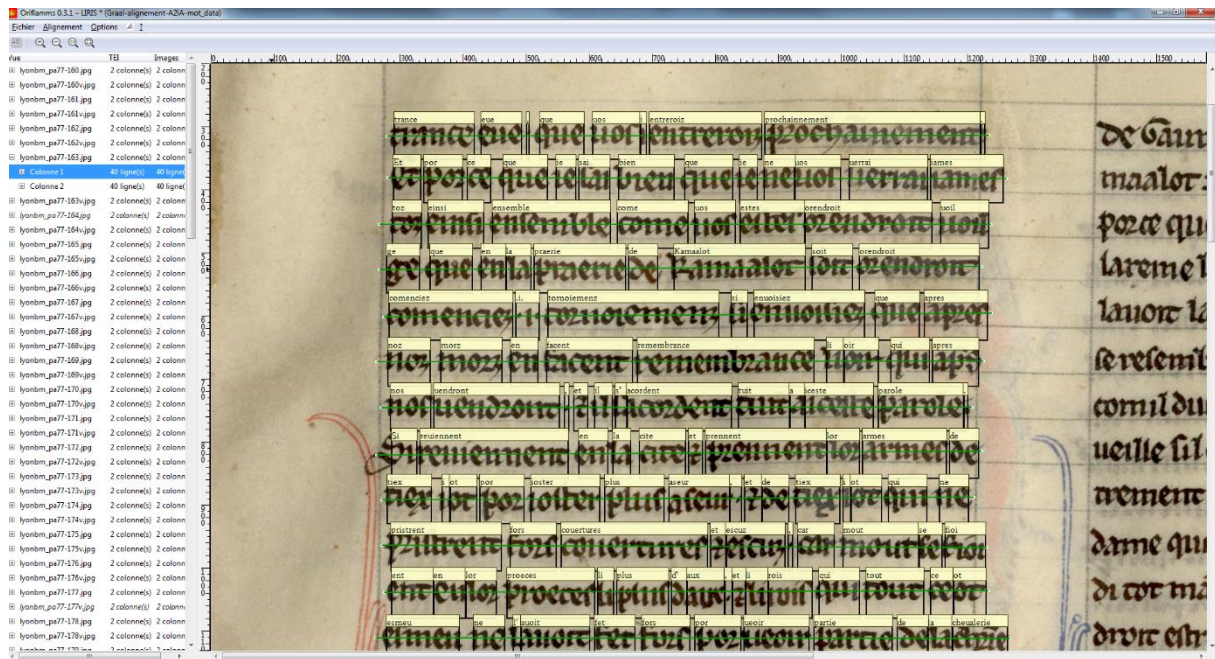 Oriflamms 0.3.1 – LIRIS * (Graal-alignement-A2iA-mot_data)
Fichier Alignement Options ?
Vue TEI Images
100 200 300 400 500 600 700 800 900 1000 1100 1200 1300 1400 1500
lyonbm_pa77-160.jpg 2 colonne(s) 2 colonn
lyonbm_pa77-160v.jpg 2 colonne(s) 2 colonn
lyonbm_pa77-161.jpg 2 colonne(s) 2 colonn
lyonbm_pa77-161v.jpg 2 colonne(s) 2 colonn
lyonbm_pa77-162.jpg 2 colonne(s) 2 colonn
lyonbm_pa77-162v.jpg 2 colonne(s) 2 colonn
lyonbm_pa77-163.jpg 2 colonne(s) 2 colonn
Colonne 1 40 ligne(s) 40 ligne(
Colonne 2 40 ligne(s) 40 ligne(
lyonbm_pa77-163v.jpg 2 colonne(s) 2 colonn
lyonbm_pa77-164.jpg 2 colonne(s) 2 colonn
lyonbm_pa77-164v.jpg 2 colonne(s) 2 colonn
lyonbm_pa77-165.jpg 2 colonne(s) 2 colonn
lyonbm_pa77-165v.jpg 2 colonne(s) 2 colonn
lyonbm_pa77-166.jpg 2 colonne(s) 2 colonn
lyonbm_pa77-166v.jpg 2 colonne(s) 2 colonn
lyonbm_pa77-167.jpg 2 colonne(s) 2 colonn
lyonbm_pa77-167v.jpg 2 colonne(s) 2 colonn
lyonbm_pa77-168.jpg 2 colonne(s) 2 colonn
lyonbm_pa77-168v.jpg 2 colonne(s) 2 colonn
lyonbm_pa77-169.jpg 2 colonne(s) 2 colonn
lyonbm_pa77-169v.jpg 2 colonne(s) 2 colonn
lyonbm_pa77-170.jpg 2 colonne(s) 2 colonn
lyonbm_pa77-170v.jpg 2 colonne(s) 2 colonn
lyonbm_pa77-171.jpg 2 colonne(s) 2 colonn
lyonbm_pa77-171v.jpg 2 colonne(s) 2 colonn
lyonbm_pa77-172.jpg 2 colonne(s) 2 colonn
lyonbm_pa77-172v.jpg 2 colonne(s) 2 colonn
lyonbm_pa77-173.jpg 2 colonne(s) 2 colonn
lyonbm_pa77-173v.jpg 2 colonne(s) 2 colonn
lyonbm_pa77-174.jpg 2 colonne(s) 2 colonn
lyonbm_pa77-174v.jpg 2 colonne(s) 2 colonn
lyonbm_pa77-175.jpg 2 colonne(s) 2 colonn
lyonbm_pa77-175v.jpg 2 colonne(s) 2 colonn
lyonbm_pa77-176.jpg 2 colonne(s) 2 colonn
lyonbm_pa77-176v.jpg 2 colonne(s) 2 colonn
lyonbm_pa77-177.jpg 2 colonne(s) 2 colonn
lyonbm_pa77-177v.jpg 2 colonne(s) 2 colonn
lyonbm_pa77-178.jpg 2 colonne(s) 2 colonn
lyonbm_pa77-178v.jpg 2 colonne(s) 2 colonn
lyonbm_pa77-179.jpg 2 colonne(s) 2 colonn
trance eue que uos i entreroiz prochainnement
Et por ce que ie sai bien que ie ne uos uerrai iames
toz einsi ensemble come uos estes orendroit uoil
ge que en la praerie de Kamaalot soit orendroit
comenciez .i. tornoiemenz si enuoisiez que apres
noz morz en facent remembrance li oir qui apres
nos uendront , et il s' acordent tuit a ceste parole .
Si reuiennent en la cite et prennent lor armes de
tiex i ot por ioster plus aseur , et de tiex i ot qui ne
pristrent fors couertures et escuz , car mout se fioi
ent en lor proeces li plus d' aux , et li rois qui tout ce ot
esmeu ne l' auoit fet fors por ueoir partie de la cheualerie
de Gaun
maalot
porce que
lareine l
lauoit la
se resembl
com il du
ueille sil
trement
dame qui
di tot ma
droit estr